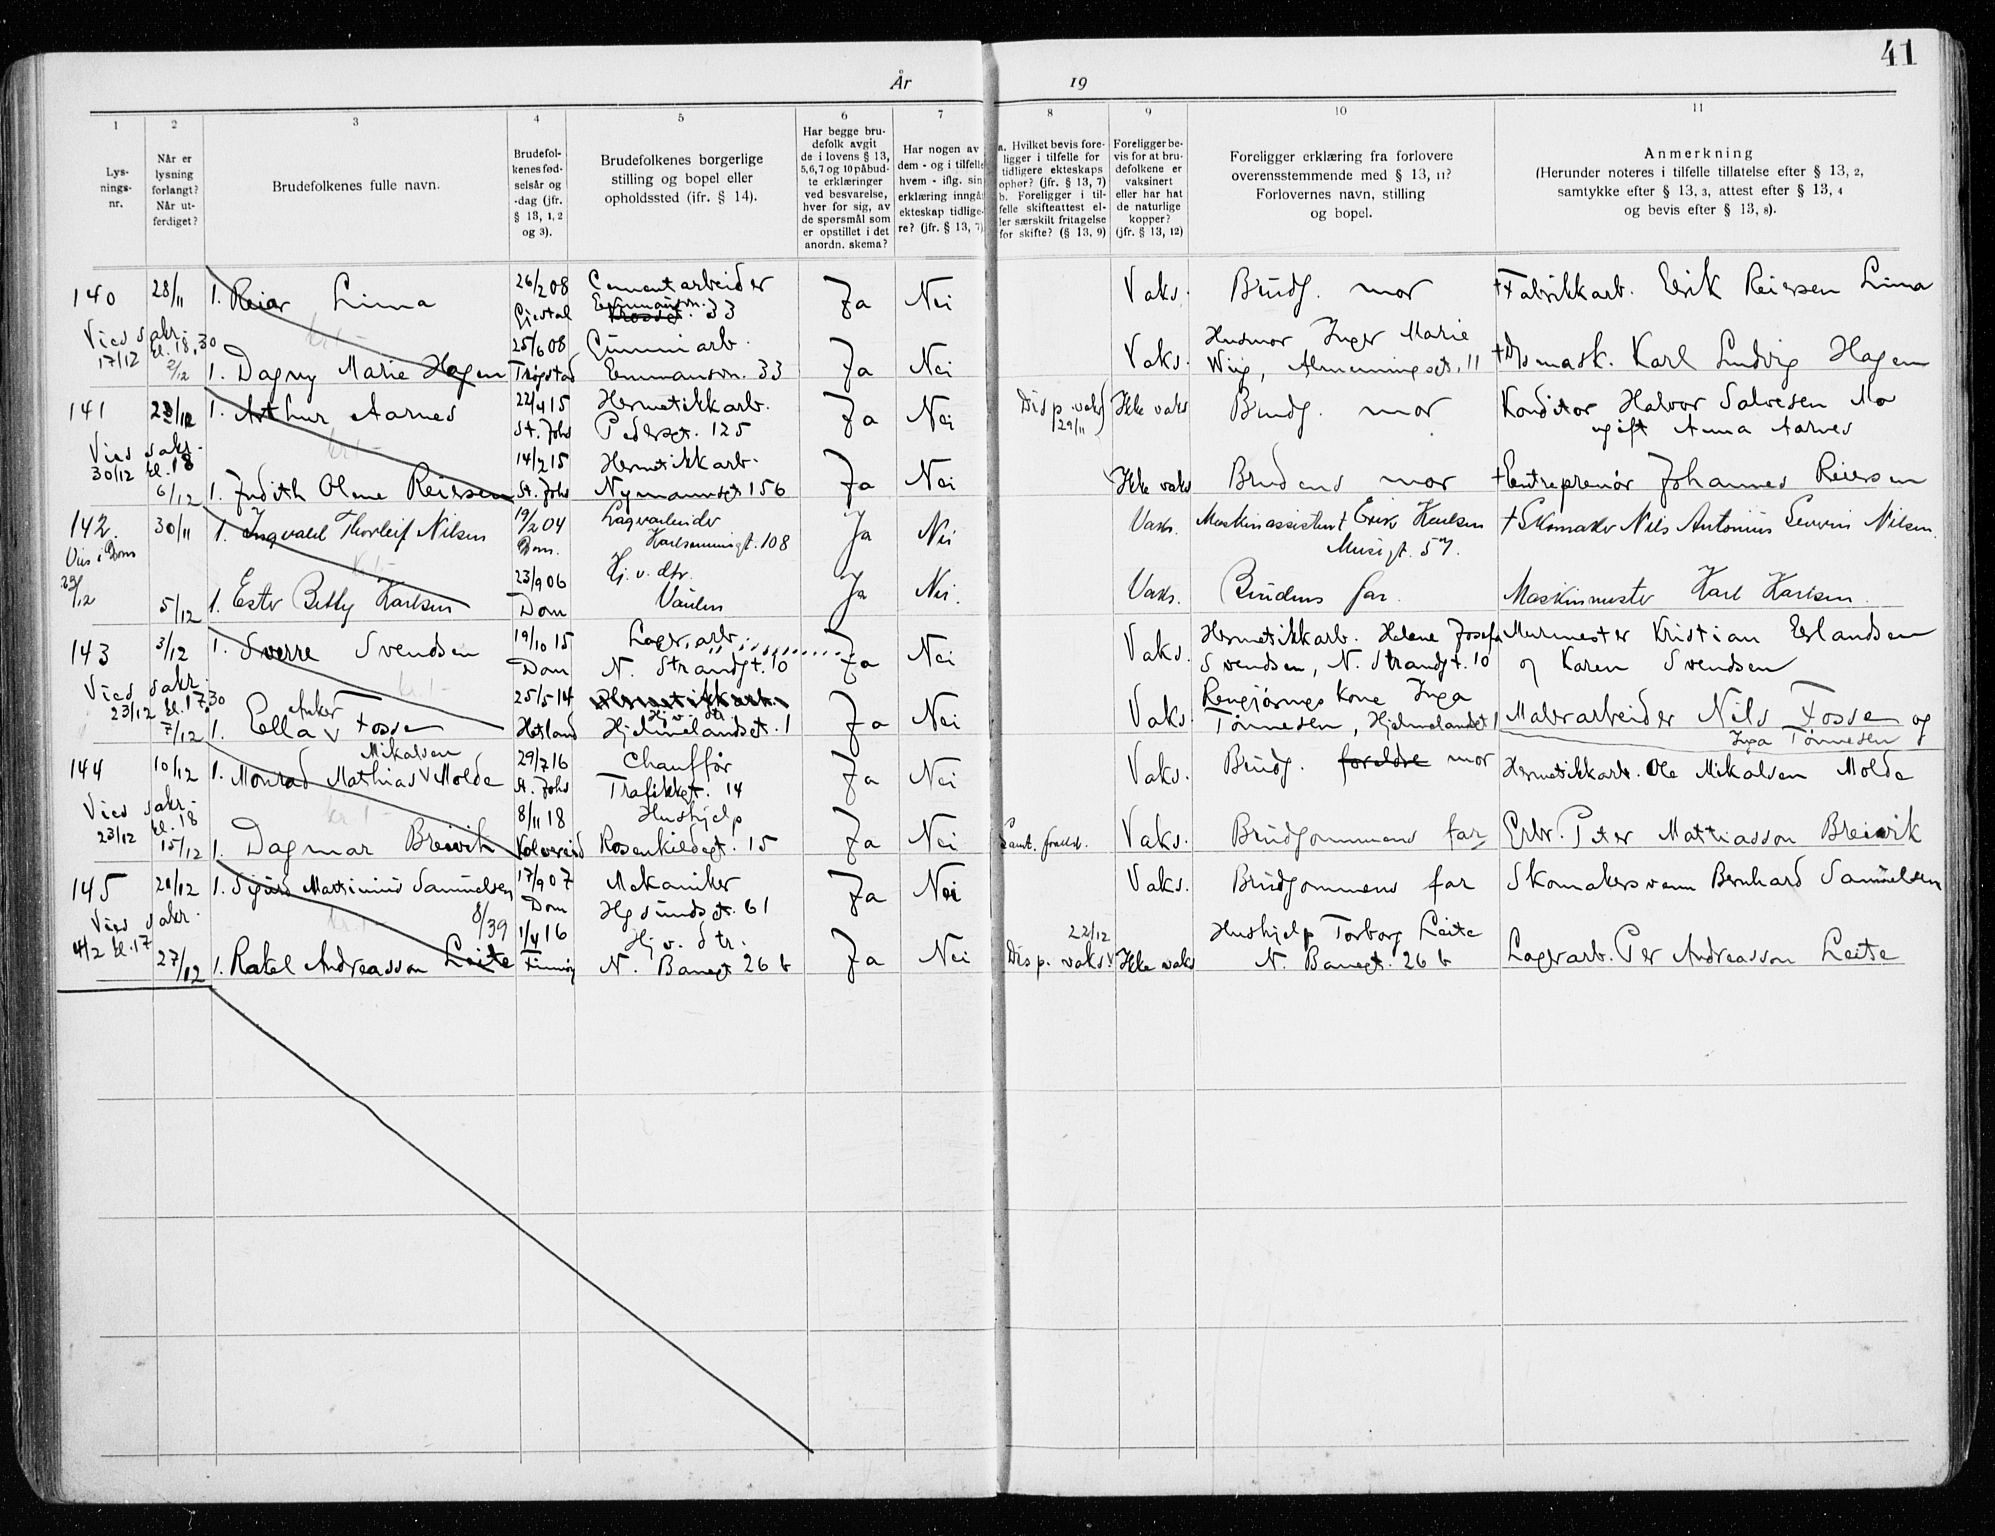 41
År 19
1 2 3 4 5 6 7 8 9 10 11
Lys-
nings-
nr.
Når er
lysning
forlangt?
Når ut-
ferdiget?
Brudefolkenes fulle navn.
Brudefol-
kenes fød-
selsår og
-dag (jfr.
§ 13, 1, 2
og 3).
Brudefolkenes borgerlige
stilling og bopel eller
opholdssted (ifr. § 14).
Har begge bru-
defolk avgit
de i lovens § 13,
5,6,7 og 10 påbud-
te erklæringer
ved besvarelse,
hver for sig, av
de spørsmål som
er opstillet i det
anordn. skema?
Har nogen av
dem - og i tilfelle
hvem - iflg. sin
erklæring inngå
ekteskap tidlige-
re? (jfr. § 13, 7)
a. Hvilket bevis fore-
ligger i tilfelle for
tidligere ekteskaps
ophør? (jfr. § 13, 7)
b. Foreligger i til-
felle skifteattest el-
ler særskilt fritagelse
for skifte? (§ 13, 9)
Foreligger be-
vis for at bru-
defolkene er
vaksinert
eller har hat
de naturlige
kopper?
(jfr. § 13, 12)
Foreligger erklæring fra forlovere
overensstemmende med § 13, 11?
Forlovernes navn, stilling
og bopel.
Anmerkning
(Herunder noteres i tilfelle tillatelse efter § 13, 2,
samtykke efter § 13, 3, attest efter § 13, 4
og bevis efter § 13, 8).
140 28/11 1. Reier Lima 26/2 08 Cementarbeider Ja Nei Vaks. Brudg. mor † Fabrikkarb. Eirik Reiersen Lima
Gjestal Emmausvn. 33
Vies sakr. kl. 18,30
17/12 2/12 1. Dagny Marie Hagen 25/6 08 Gummiarb. Ja Nei Vaks. Husmor Inger Marie
Trøgstad Emmausvn. 33 Wiig, Almenningsgt. 11 † Dsmask. Karl Ludvig Hagen
141 1. Arthur Aarnes 22/4 15 Hermetikkarb. Ja Nei Disp. vaks 29/11 Ikke vaks Brudg. mor Konditor Halvor Salvesen Mo
St. Johs Pedersgt. 125 ugift Anna Aarnes
Vies sakr.
30/12 kl. 18
6/12 1. Judith Olene Reiersen 14/2 15 Hermetikkarb. Ja Nei Ikke vaks Brudens mor † Entreprenør Johannes Reiersen
St. Johs Nymannsgt 156
142. 30/11 1. Ingvald Thorleif Nilsen 19/2 04 Lagerarbeider Ja Nei Vaks. Maskinassistent Eirik Karlsen † Skomaker Nils Antonius Severin Nilsen.
Dom. Karlsminnegt. 108 Musegt. 57.
Vies i Dom
23/12
5/12 1. Ester Betty Karlsen 23/9 06 Hj. v. dtr. Ja Nei. Vaks. Brudens far. Maskinmester Karl Karlsen.
Dom Vaulen
143 3/12 1. Sverre Svendsen 19/10 15 Lagerarb. Ja Nei Vaks. Hermetikkarb. Helene Josefa Murmester Kristian Erlandsen
Dom N. Strandgt. 10 Svendsen, N. Strandgt. 10 og Karen Svendsen
Vies sakr.
23/12 kl. 17,30
7/12 1. Ella Anker Fosse 25/5-14 Hermetikkarb. Hj. v. str. Ja Nei Vaks. Rengjørings kone Inga
Hetland Hjelmelandsgt. 1 Tønnesen, Hjelmelandsgt 1 Malerarbeider Nils Fosse og
Inga Tønnesen
144 10/12 1. Monrad Mathias Mikalsen Molde 29/7 16 Chauffør Ja Nei Vaks. Brudg. foreldre mor Hermetikkarb. Ole Mikalsen Molde
St. Johs Trafikkgt. 14
Vies sakr.
23/12 kl. 18
15/12 1. Dagmar Breivik 8/11 18 Hushjelp Ja Nei Vaks. Brudgommens far Erbr. Peter Mattiasson Breivik
Kolvereid Rosenkildegt. 15
145 20/12 1. Sigurd Martinius Samuelsen 17/9 07 Mekaniker Ja Nei Vaks. Brudgommens far Skomakersvenn Bernhard Samuelsen
Dom Hgsundsgt. 61
Vies sakr. 8/39
4/2 kl. 17
27/12 1. Rakel Andreasson Leite 1/4 16 Hj v. Str. Ja Nei 22/12 Disp. vaks Ikke vaks Hushjelp Torborg Leite
Finnøy N. Banegt 26 b N. Banegt. 26 b Lagerarb. Per Andreasson Leite